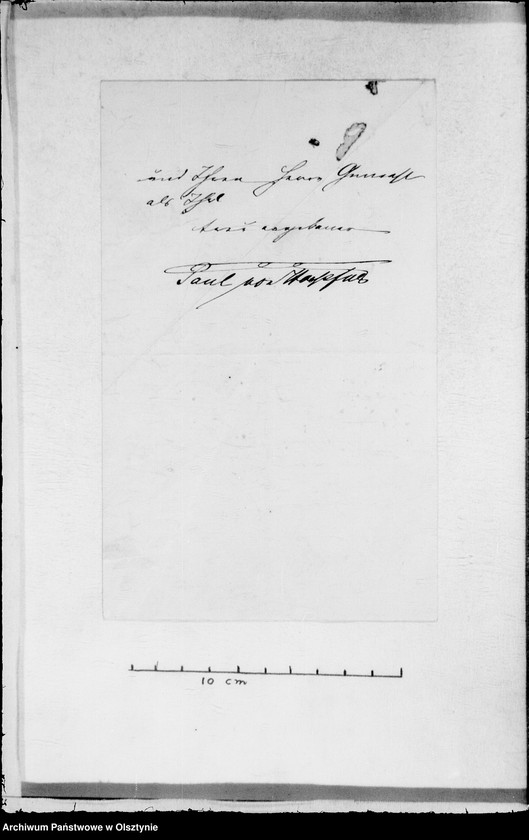 und Ihren Herrn Gemahl
als Ihr
treu ergebener
Paul von
10 cm
Archiwum Państwowe w Olsztynie